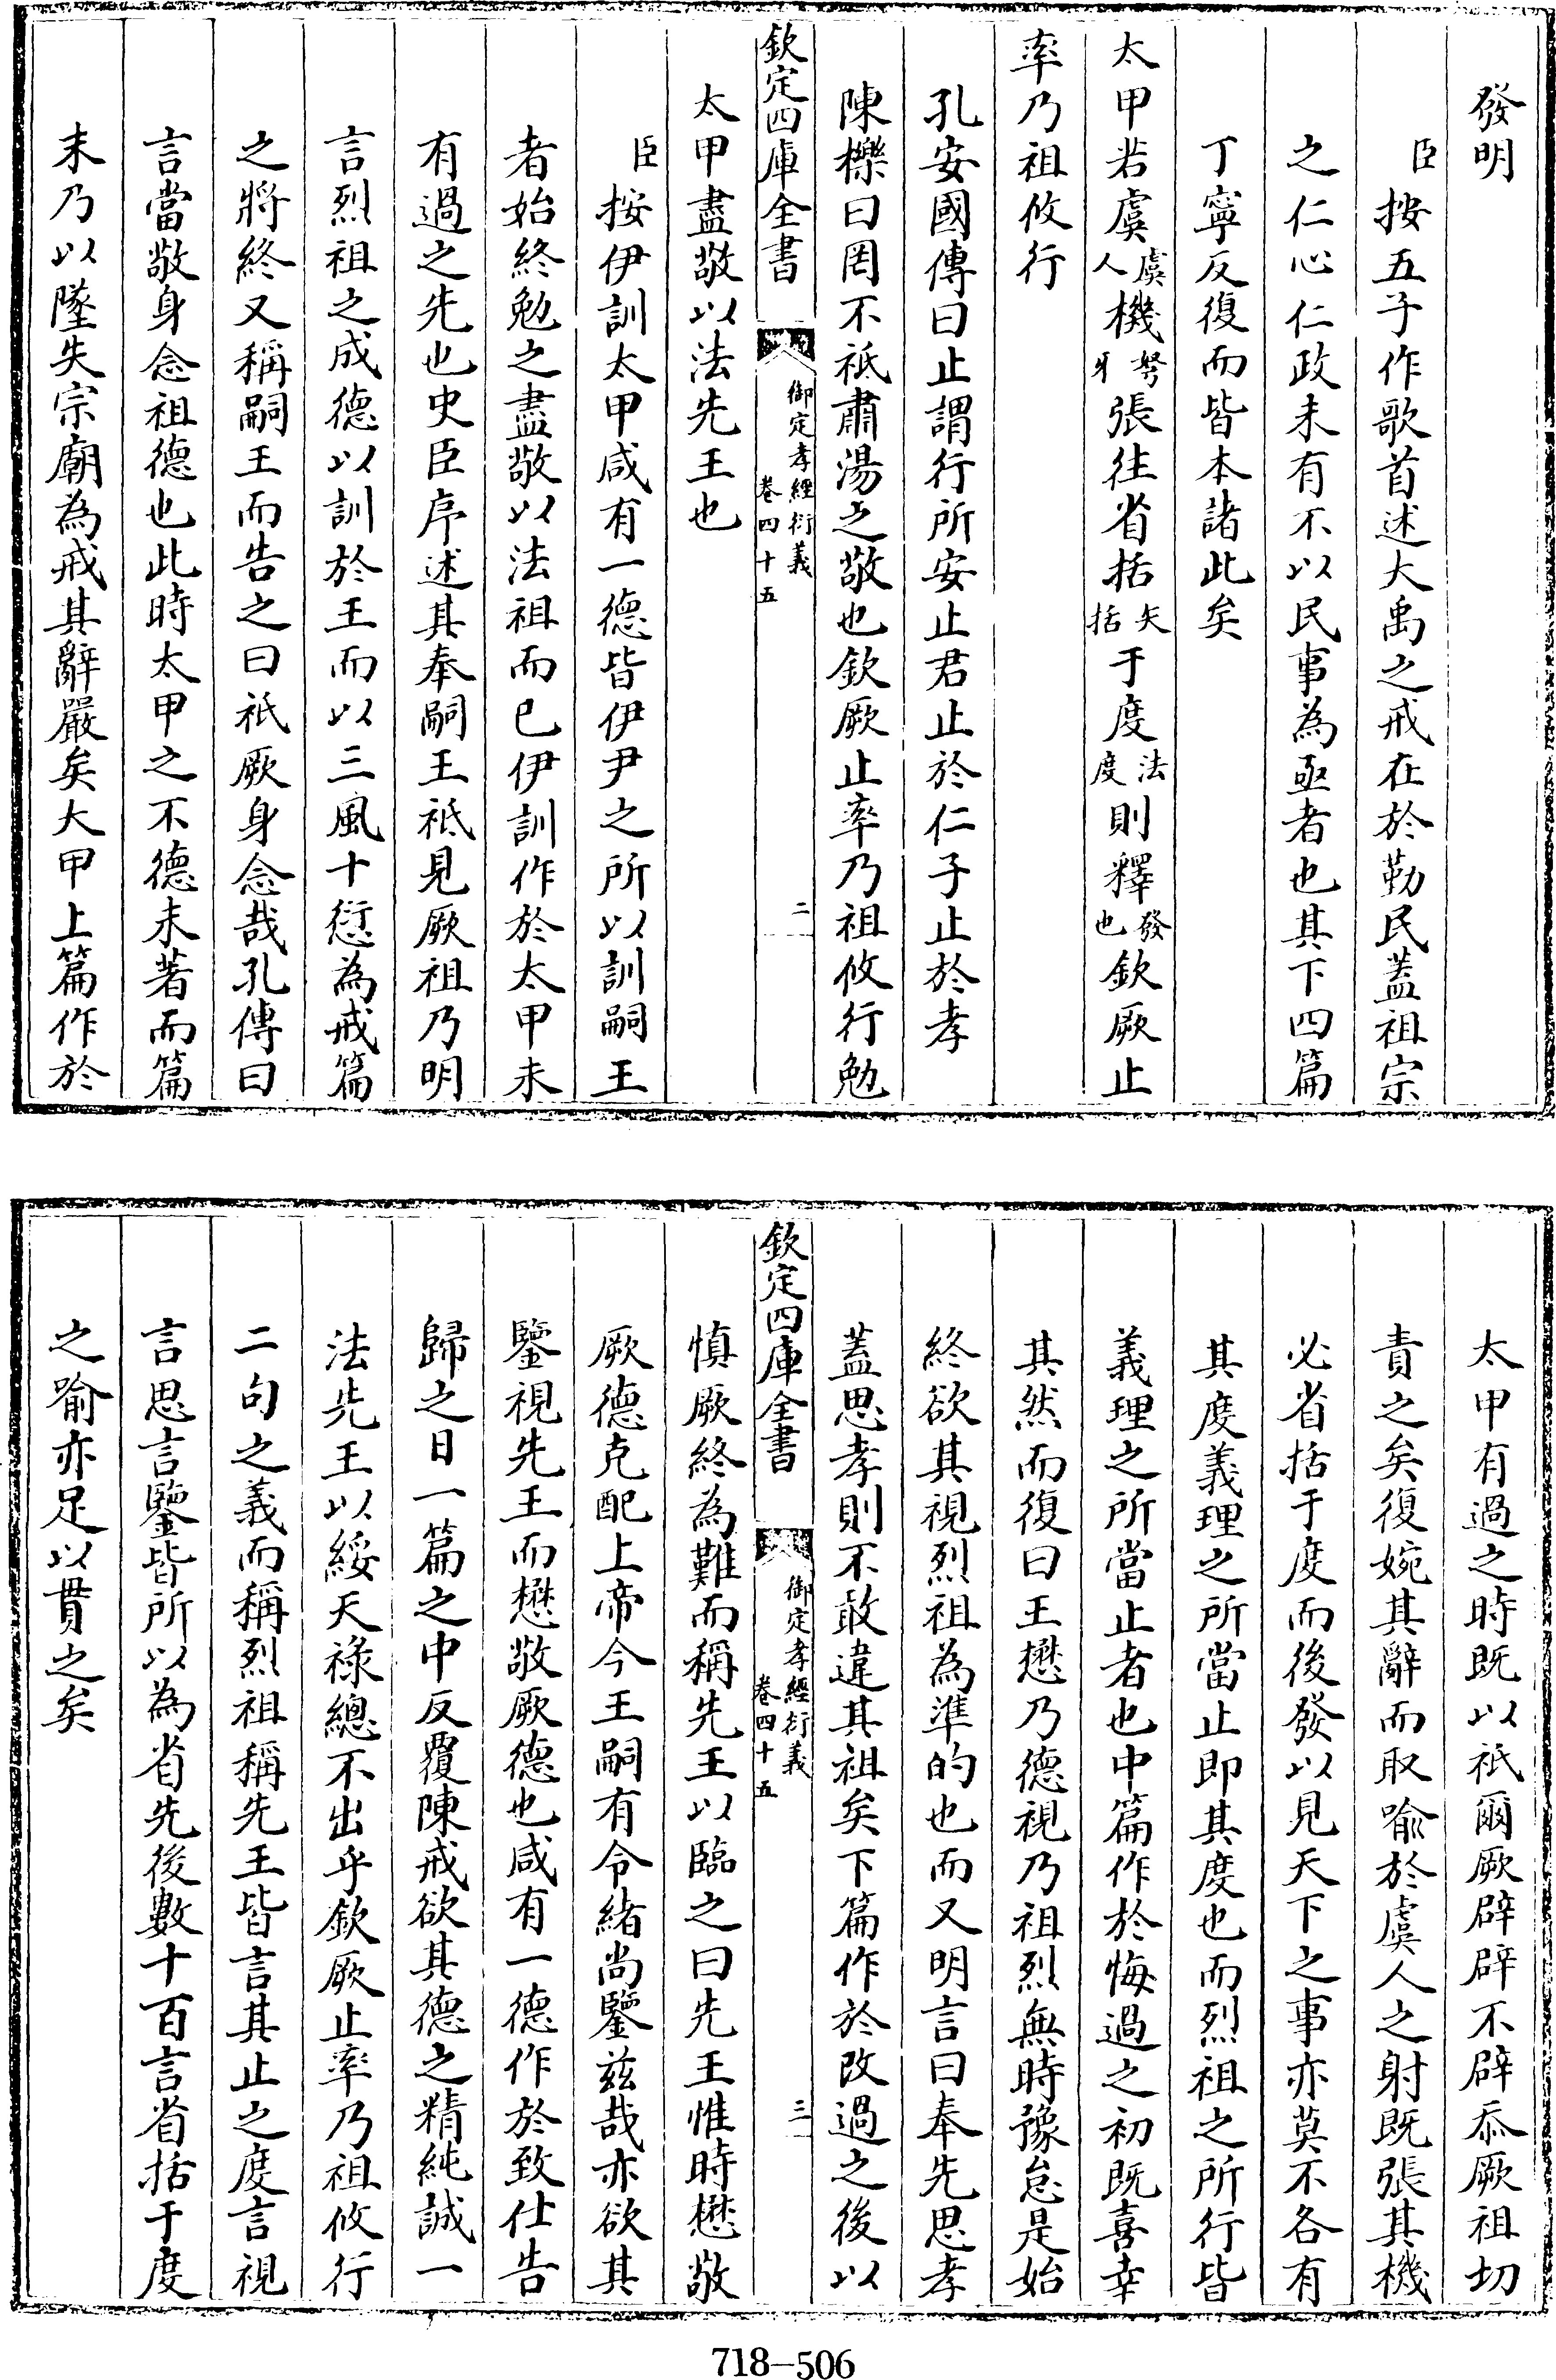 發明
臣按五子作歌首述大禹之戒在於勤民蓋祖宗
之仁心仁政未有不以民事為亟者也其下四篇
丁寧反復而皆本諸此矣
太甲若虞虞人機弩牙張往省括矢括于度法度則釋發也欽厥止
率乃祖攸行
孔安國傳曰止謂行所安止君止於仁子止於孝
陳櫟曰罔不祗肅湯之敬也欽厥止率乃祖攸行勉
欽定四庫全書
御定孝經衍義
卷四十五
二
太甲盡敬以法先王也
臣按伊訓太甲咸有一德皆伊尹之所以訓嗣王
者始終勉之盡敬以法祖而已伊訓作於太甲未
有過之先也史臣序述其奉嗣王祗見厥祖乃明
言烈祖之成德以訓於王而以三風十愆為戒篇
之將終又稱嗣王而告之曰祗厥身念哉孔傳曰
言當敬身念祖德也此時太甲之不德未著而篇
末乃以墜失宗廟為戒其辭嚴矣大甲上篇作於
太甲有過之時既以祗爾厥辟辟不辟忝厥祖切
責之矣復婉其辭而取喻於虞人之射既張其機
必省括于度而後發以見天下之事亦莫不各有
其度義理之所當止即其度也而烈祖之所行皆
義理之所當止者也中篇作於悔過之初既喜幸
其然而復曰王懋乃德視乃祖烈無時豫怠是始
終欲其視烈祖為準的也而又明言曰奉先思孝
蓋思孝則不敢違其祖矣下篇作於改過之後以
欽定四庫全書
御定孝經衍義
卷四十五
三
慎厥終為難而稱先王以臨之曰先王惟時懋敬
厥德克配上帝今王嗣有令緒尚鑒茲哉亦欲其
鑒視先王而懋敬厥德也咸有一德作於致仕告
歸之日一篇之中反覆陳戒欲其德之精純誠一
法先王以綏天祿總不出乎欽厥止率乃祖攸行
二句之義而稱烈祖稱先王皆言其止之度言視
言思言鑒皆所以為省先後數十百言省括于度
之喻亦足以貫之矣
718-506